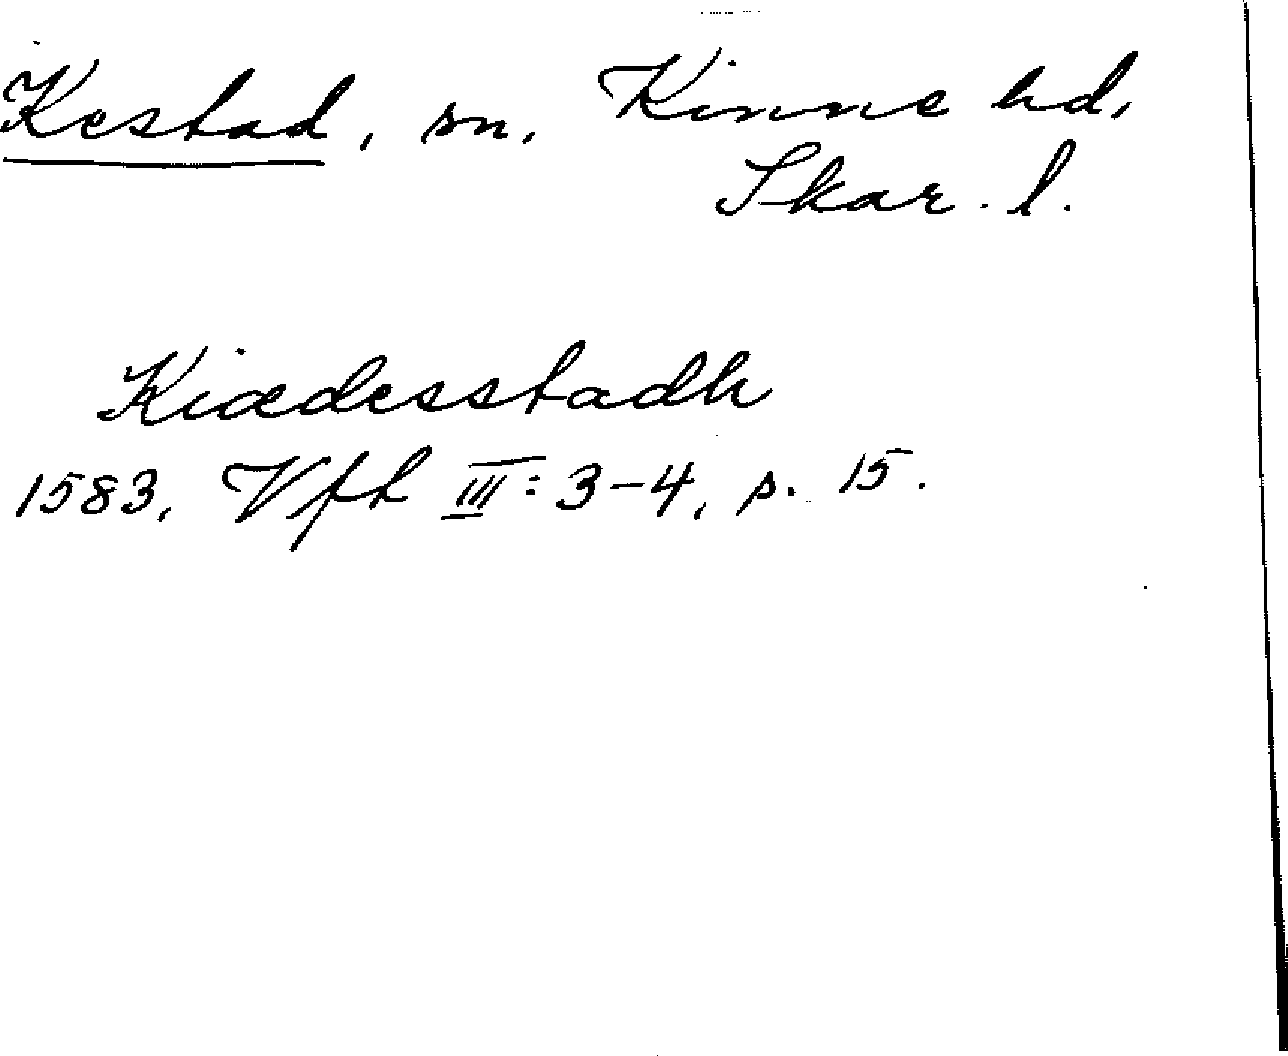 Kestad, sn. Kinne hd,
Skar. l.
Kiædesstadh
1583, Vfh III: 3-4, s. 15.